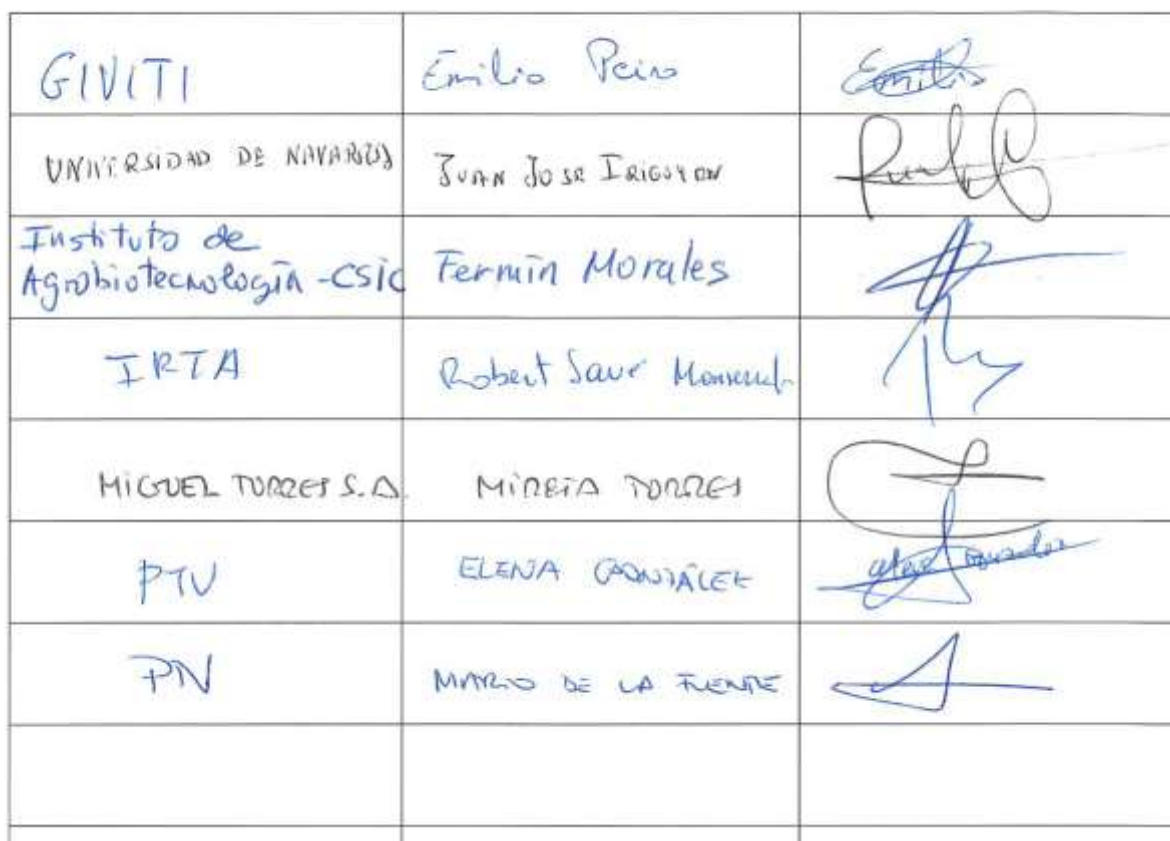 GIVITI Emilio Peiro Emilio
UNIVERSIDAD DE NAVARRA JUAN JOSE IRIGOYEN
Instituto de
Agrobiotecnología - CSIC Fermín Morales
IRTA Robert Savé
MIGUEL TORRES S.A. MIREIA TORRES
PTV ELENA GONZÁLEZ
MARIO DE LA FUENTE